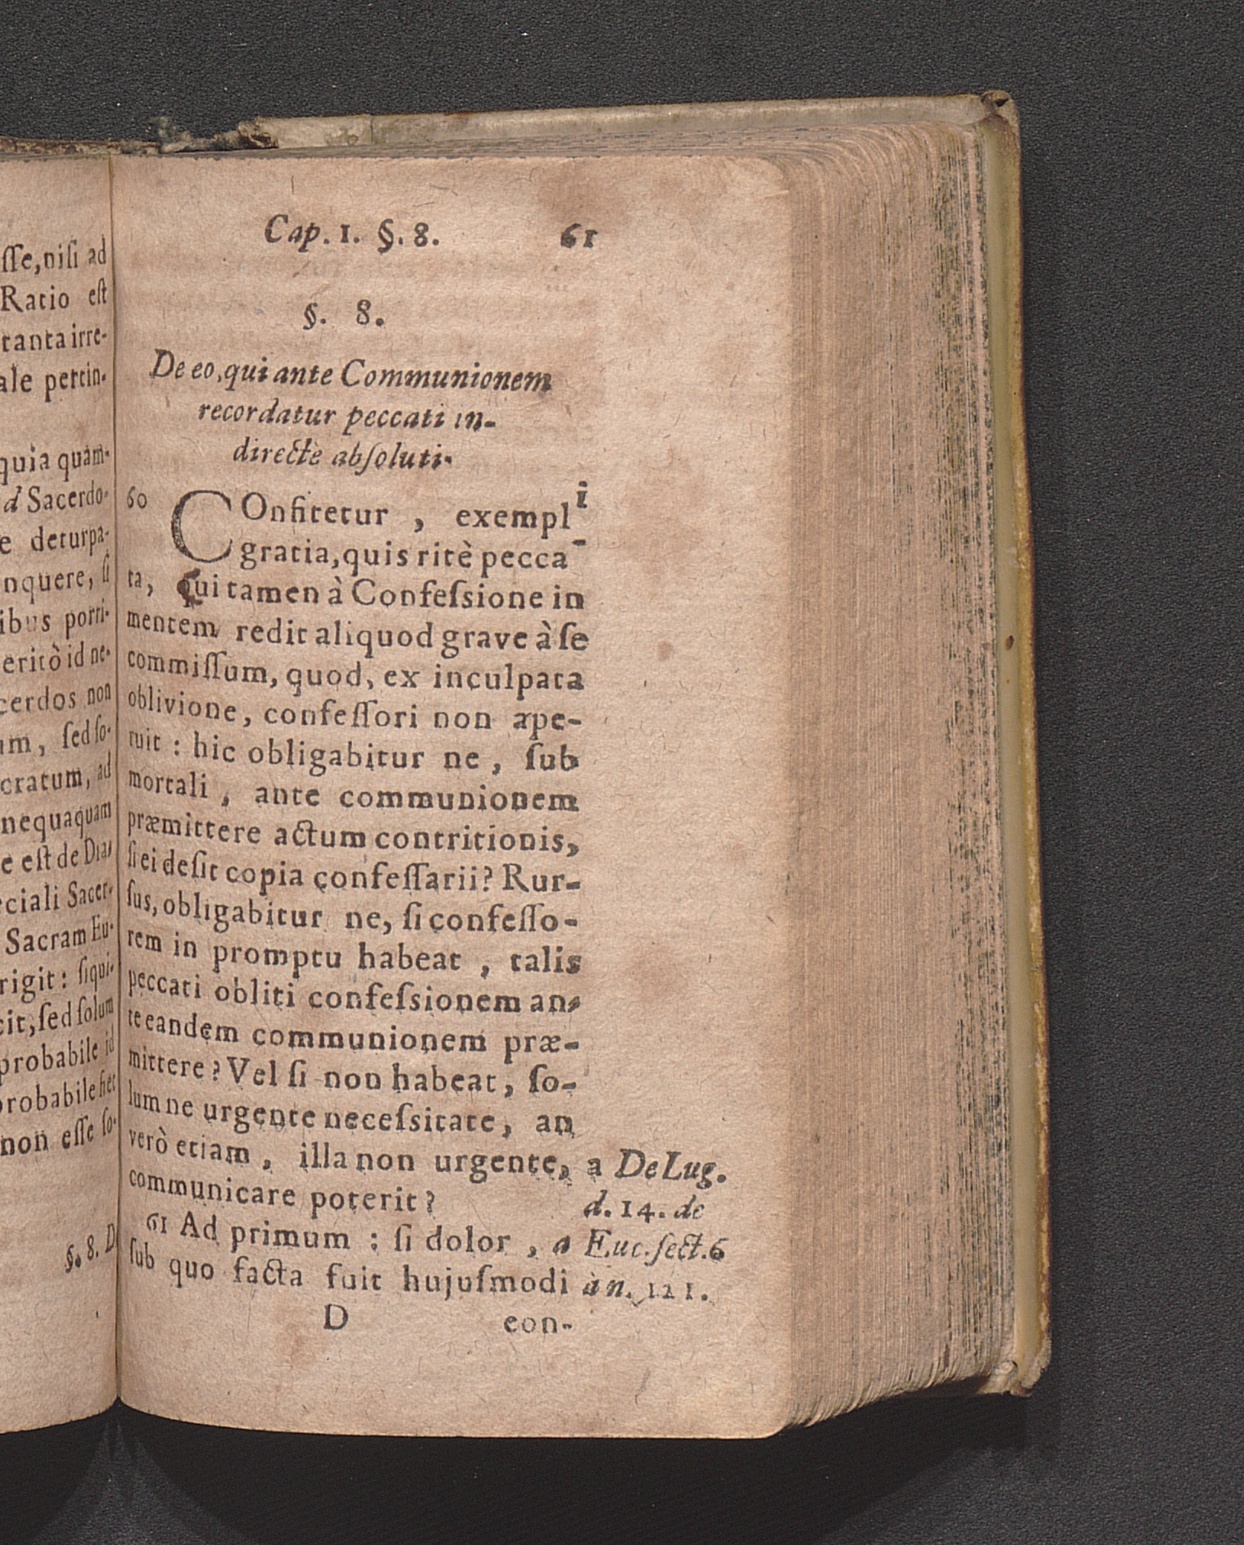 ſſe, niſi ad
Ratio eſt
tanta irre-
ale pertin-
quia quam-
d Sacerdo-
e deturpa-
nquere, ſi
ibus porri-
erito id ne-
cerdos non
um, ſed ſo-
cratum, ad
nequaquam
e eſt de Dia-
eciali Sacer-
Sacram Eu-
rigit: ſiqui-
cit, ſed ſolum
probabile id
probabile fiet
non eſſe ſo-
§. 8. D
Cap. 1. §. 8. 61
§. 8.
De eo, qui ante Communionem
recordatur peccati in-
directè abſoluti.
60 COnfitetur, exempli
gratia, quis ritè pecca-
ta, qui tamen à Confeſsione in
mentem redit aliquod grave à ſe
commiſſum, quod, ex inculpata
oblivione, confeſſori non ape-
ruit : hic obligabitur ne, ſub
mortali, ante communionem
præmittere actum contritionis,
ſi ei deſit copia confeſſarii? Rur-
ſus, obligabitur ne, ſi confeſſo-
rem in promptu habeat, talis
peccati obliti confeſsionem an-
te eandem communionem præ-
mittere? Vel ſi non habeat, ſo-
lum ne urgente neceſsitate, an
verò etiam, illa non urgente,
communicare poterit?
61 Ad primum : ſi dolor, a
ſub quo facta fuit hujuſmodi
a De Lug.
d. 14. de
Euc. ſect. 6
à n. 121.
D con-